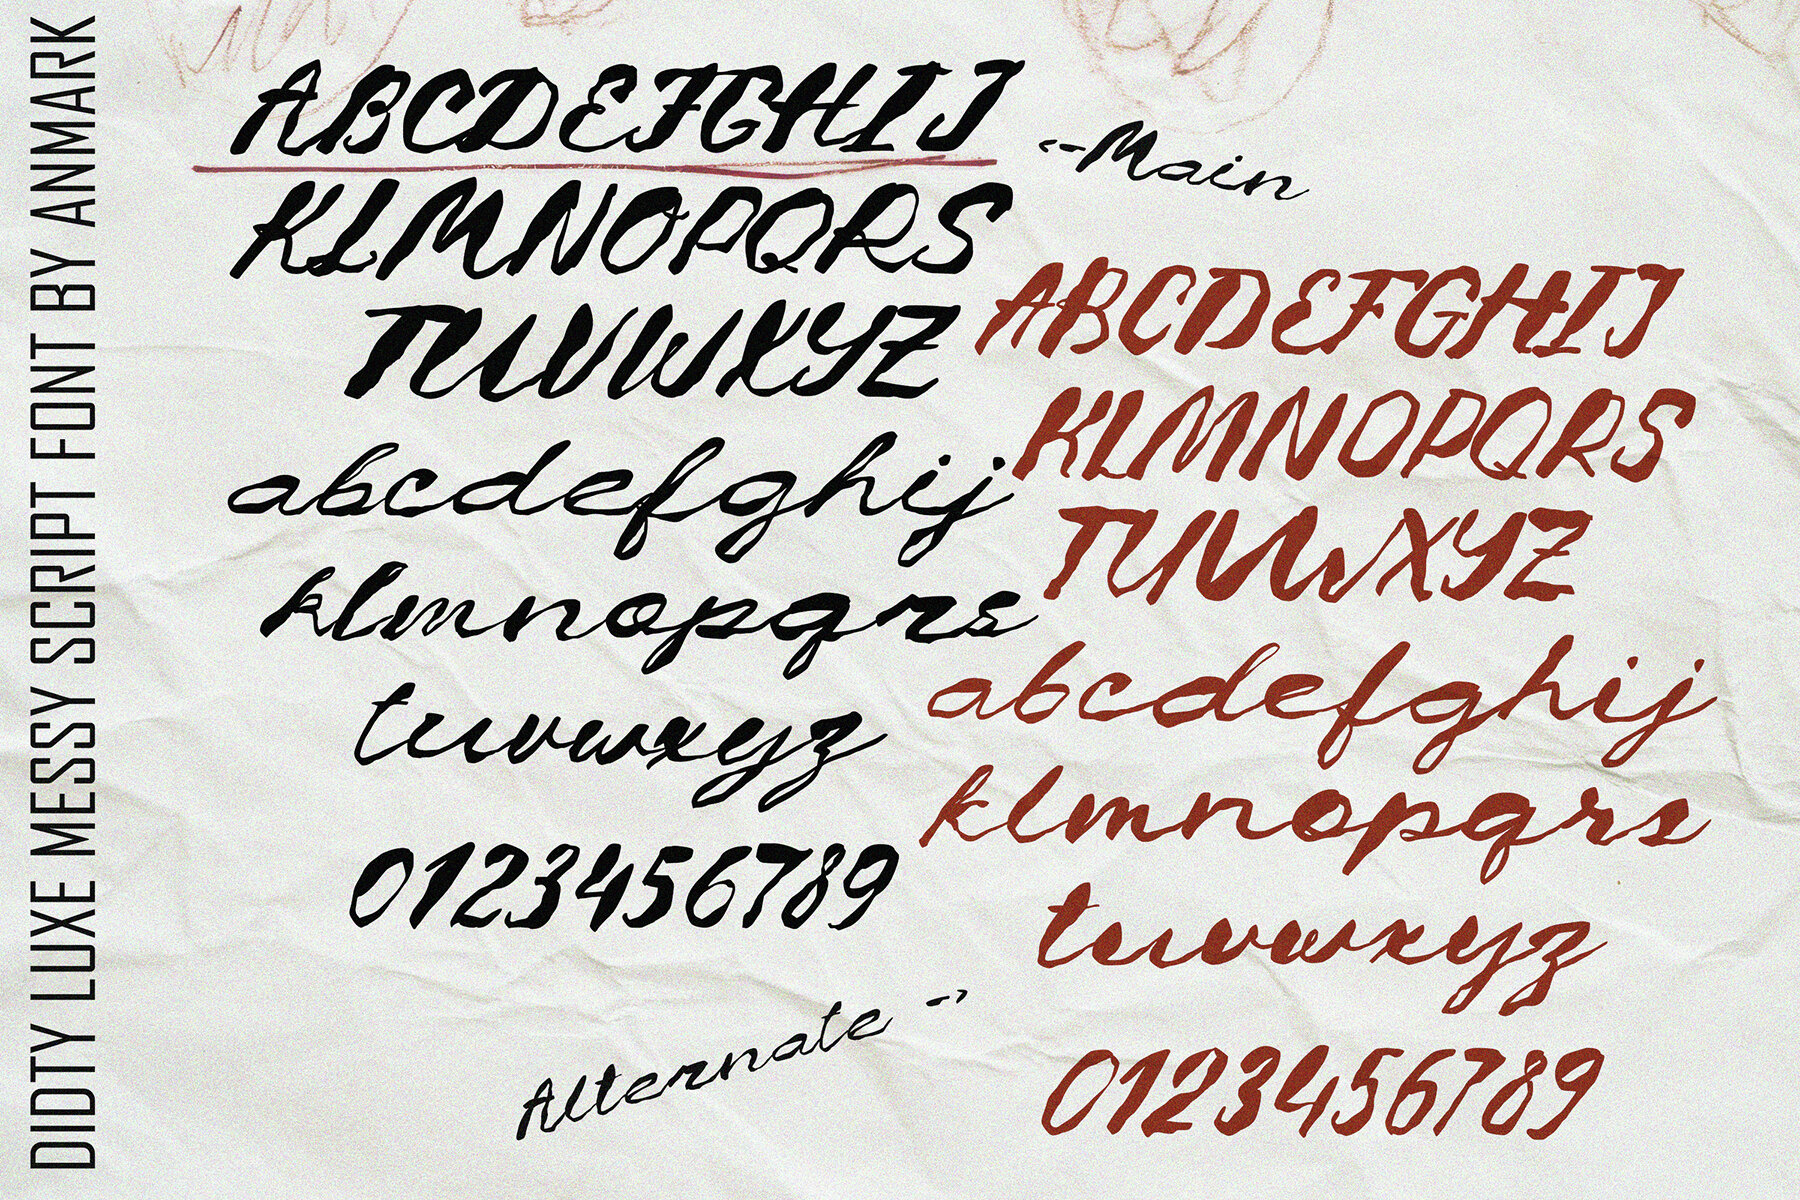 DIDTY LUXE MESSY SCRIPT FONT BY ANMARK
ABCDEFGHIJ
KLMNOPQRS
TUVWXYZ
abcdefghij
klmnopqrs
tuvwxyz
0123456789
Main
ABCDEFGHIJ
KLMNOPQRS
TUVWXYZ
abcdefghij
klmnopqrs
tuvwxyz
0123456789
Alternate